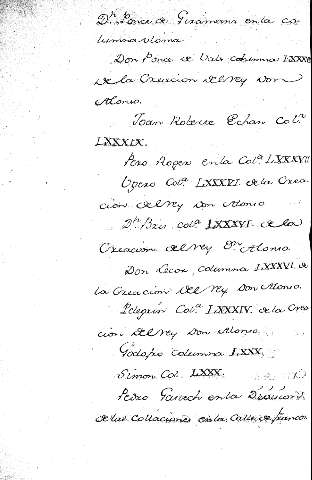 Dⁿ. Ponce de Giramans en la co-
lumna ultima.
Don Ponce de Vals columna LXXXI
de la Creacion del rey Don
Alonso.
Joan Roberre Echan Colᵃ
LXXXIX.
Pero Roger en la Colᵃ LXXXVII
Ugero Colᵃ. LXXXVI. de la Crea-
cion del rey Don Alonso
Dⁿ. Bres colᵃ LXXXVI. de la
Creacion del rey Dⁿ Alonso
Don columna LXXXVI. de
la Creacion del rey Don Alonso.
Pelegrin Colᵃ. LXXXIV. de la Crea-
cion del rey Don Alonso.
Godofro columna LXXX.
Simon Col. LXXX.
Pedro en la Division
de las collaciones en la Calle de francos